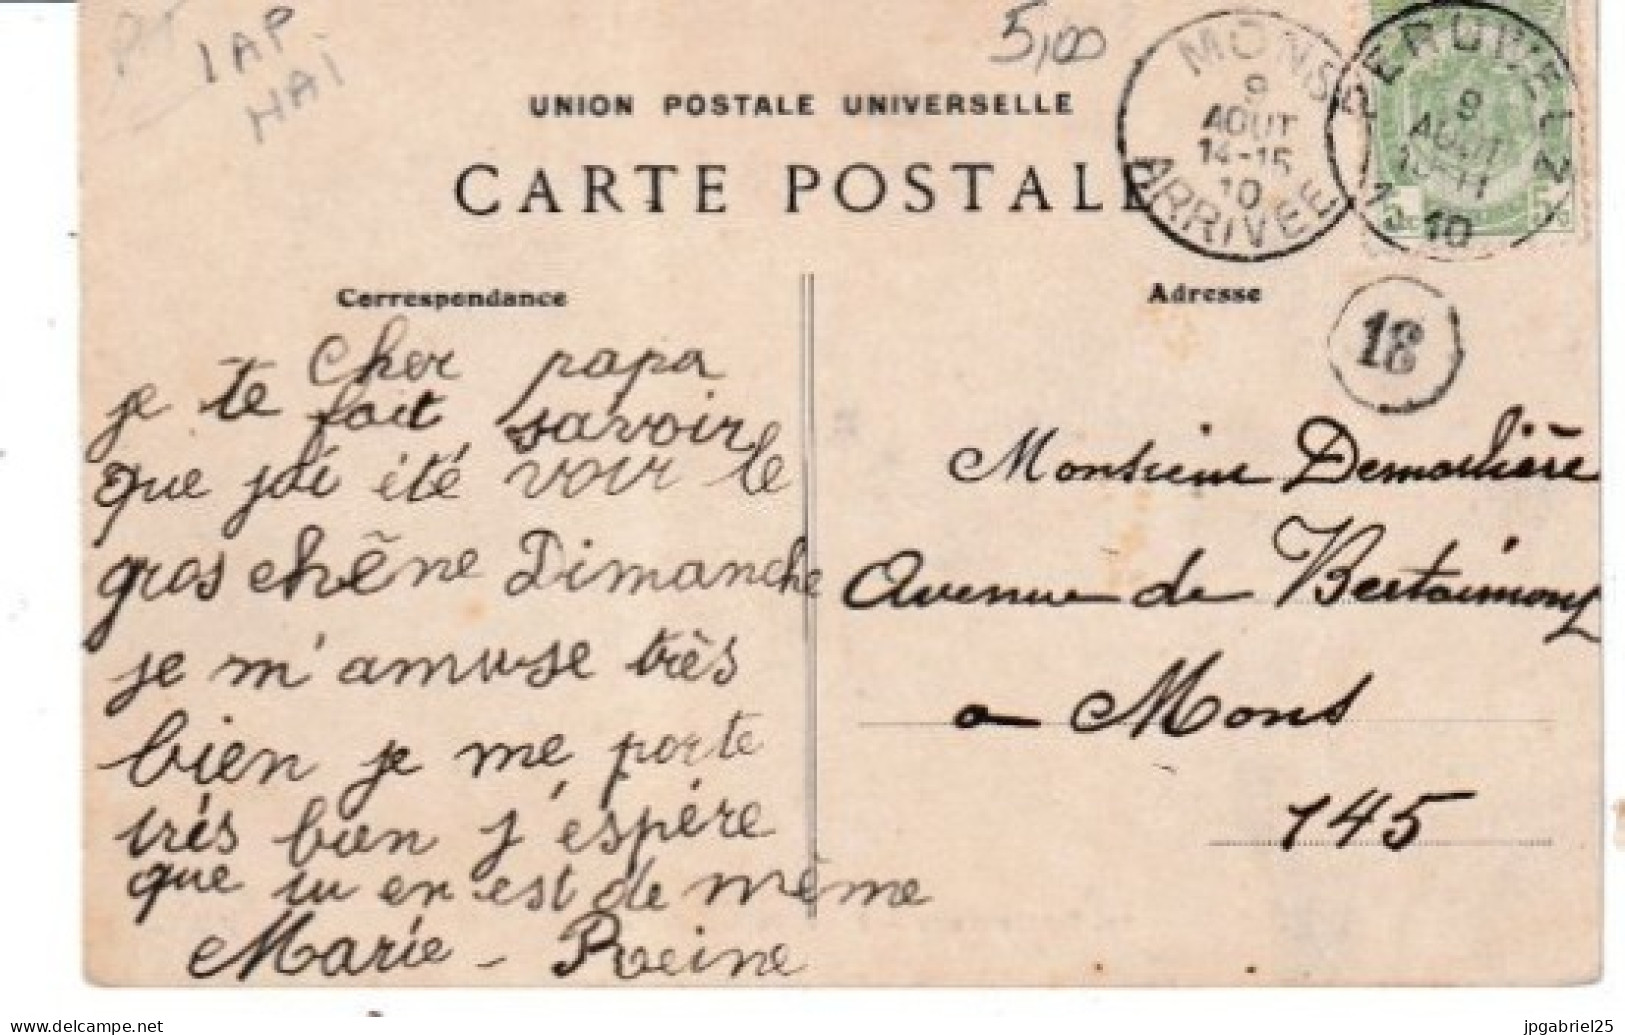 IAP
HAI
5,00
UNION POSTALE UNIVERSELLE
CARTE POSTALE
MONS
9
AOUT
14-15
10
ARRIVEE
PERUWELZ
9
AOUT
10-11
10
5c 5c
18
Correspondance
Adresse
cher papa
je te fait savoir
que jai été voir le
gros chêne Dimanche
je m'amuse très
bien je me porte
très bien j'éspére
que tu en est de même
Marie - Reine
Monsieur Demoulière
Avenue de Bertaimont
a Mons
145
delcampe.net
jpgabriel25